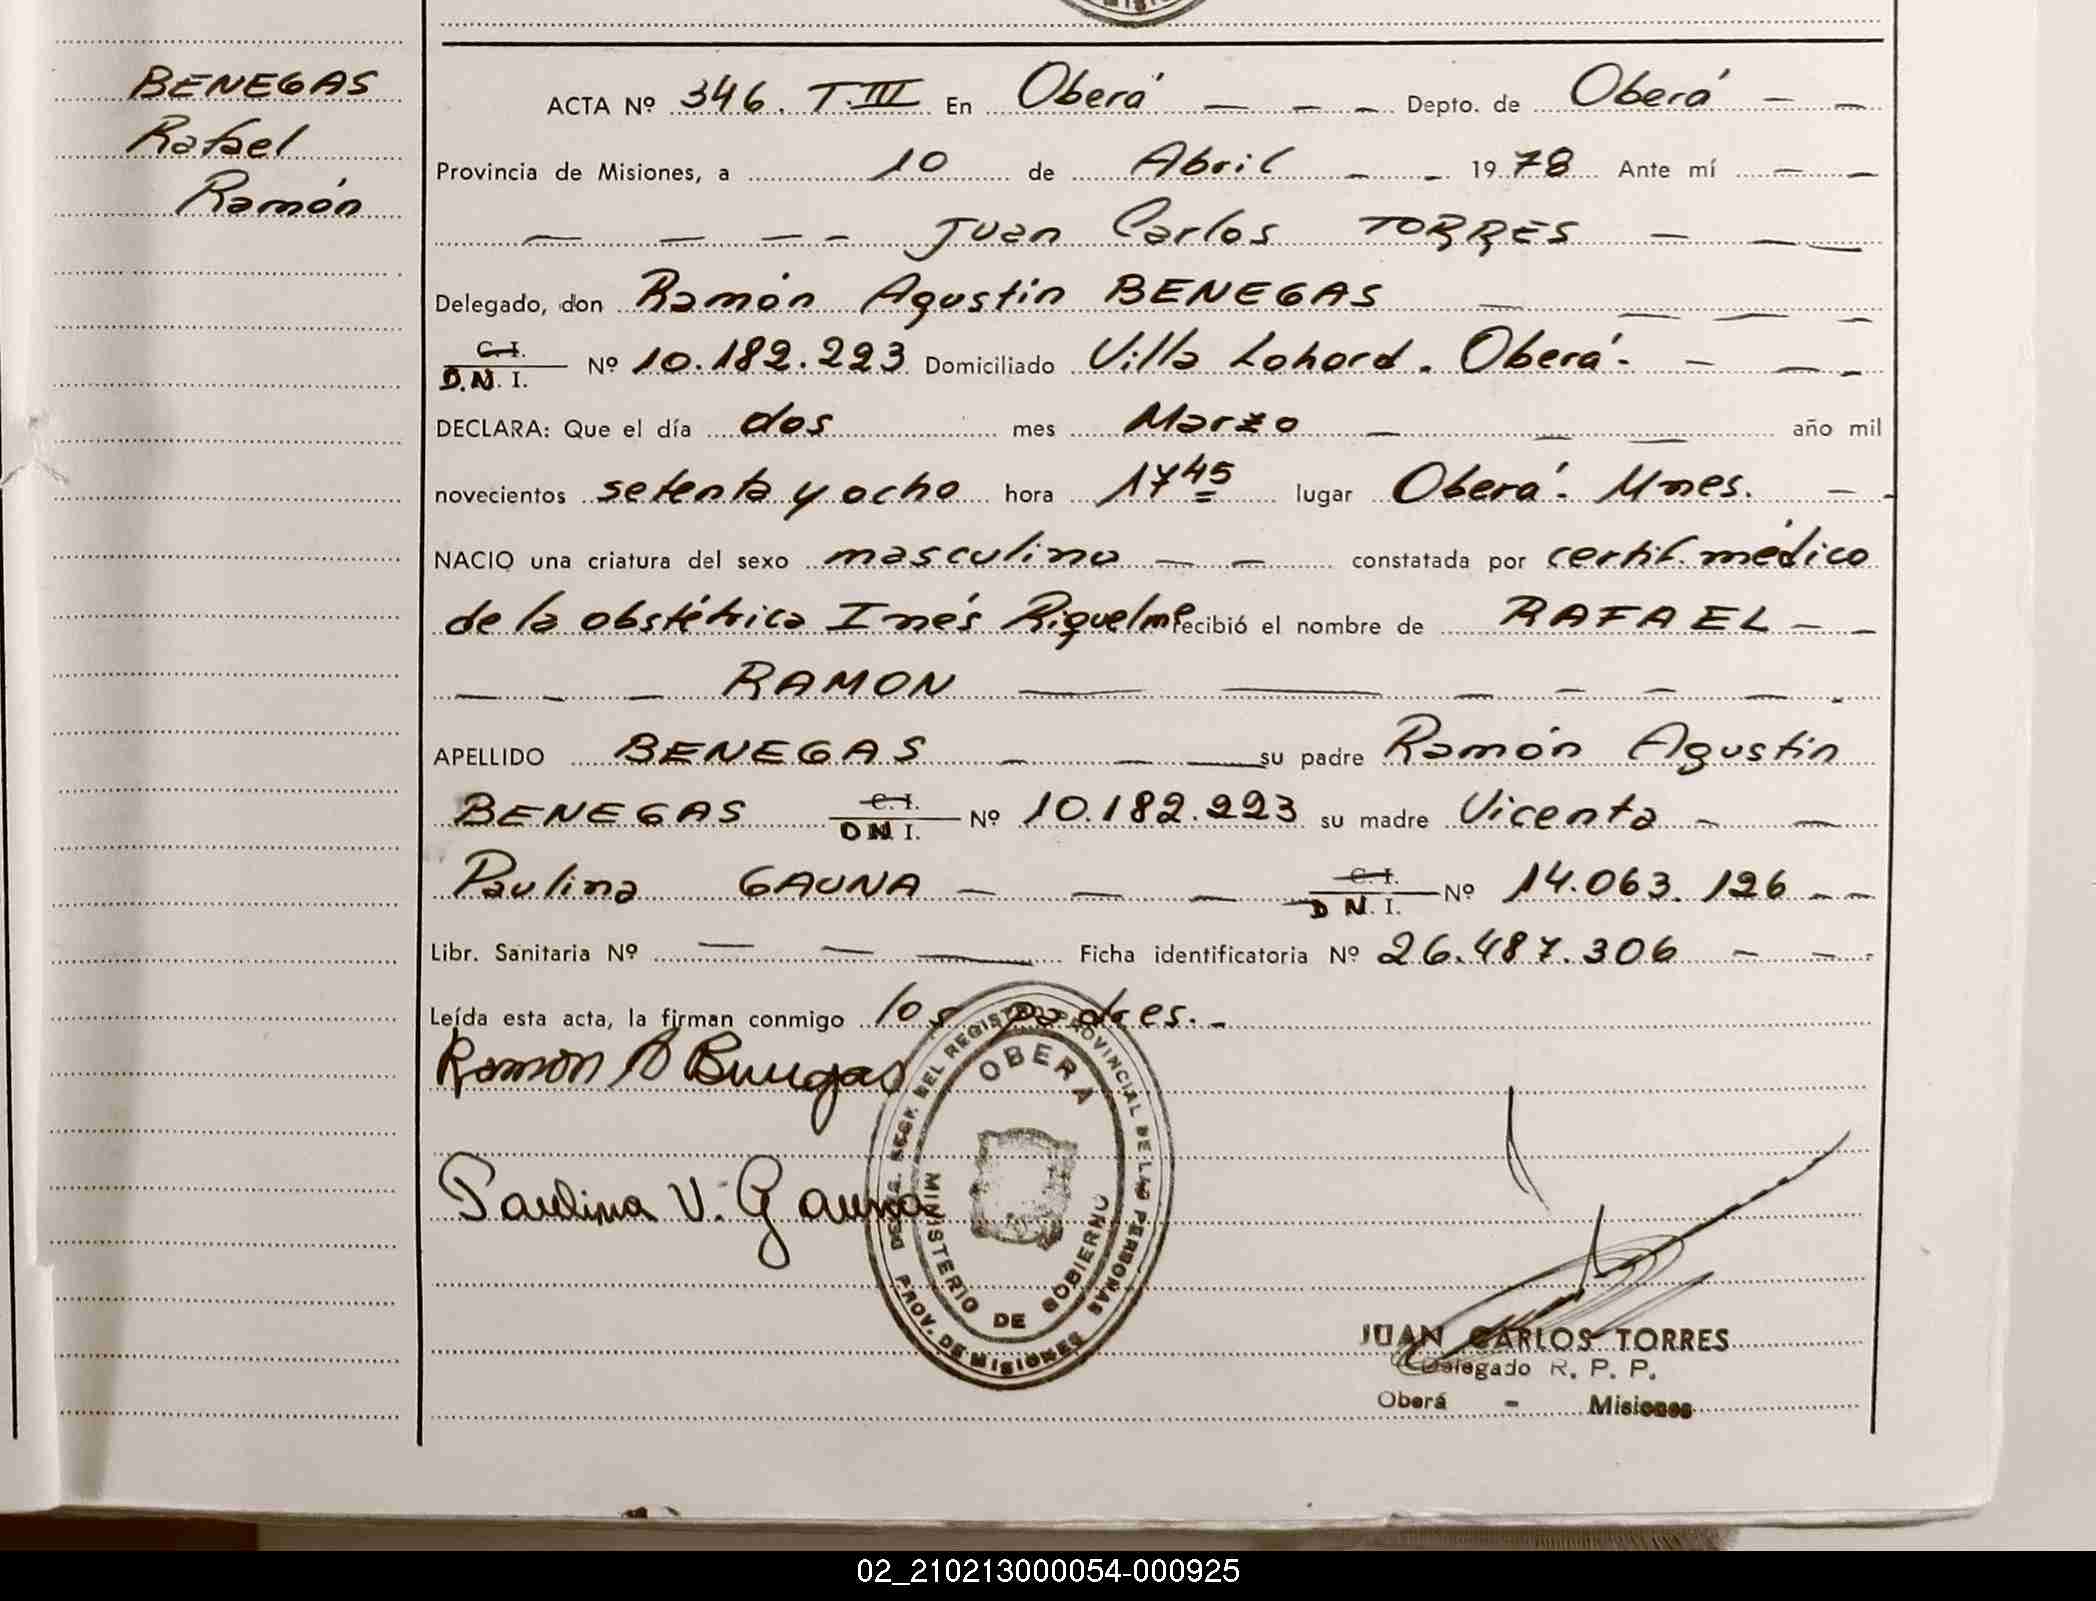 BENEGAS
Rafael
Ramón
ACTA Nº 346. T. III En Oberá Depto. de Oberá
Provincia de Misiones, a 10 de Abril 1978 Ante mí
Juan Carlos TORRES
Delegado, don Ramón Agustin BENEGAS
C. I.
D. N. I. Nº 10.182.223 Domiciliado Villa Lohord. Oberá.
DECLARA: Que el día dos mes Marzo año mil
novecientos setenta y ocho hora 17 45 lugar Oberá. Mnes.
NACIO una criatura del sexo masculino constatada por certif. médico
de la obstétrica Inés Riquelme recibió el nombre de RAFAEL
RAMON
APELLIDO BENEGAS su padre Ramón Agustin
BENEGAS C. I. D N I. Nº 10.182.223 su madre Vicenta
Paulina GAUNA C. I. D N. I. Nº 14.063.126
Libr. Sanitaria Nº Ficha identificatoria Nº 26.487.306
Leída esta acta, la firman conmigo los padres.
Ramon A Benegas
Paulina V. Gauna
REGISTRO PROVINCIAL DE LAS PERSONAS
OBERA
MINISTERIO DE GOBIERNO
PROV. DE MISIONES
JUAN CARLOS TORRES
Delegado R. P. P.
Oberá - Misiones
02_210213000054-000925